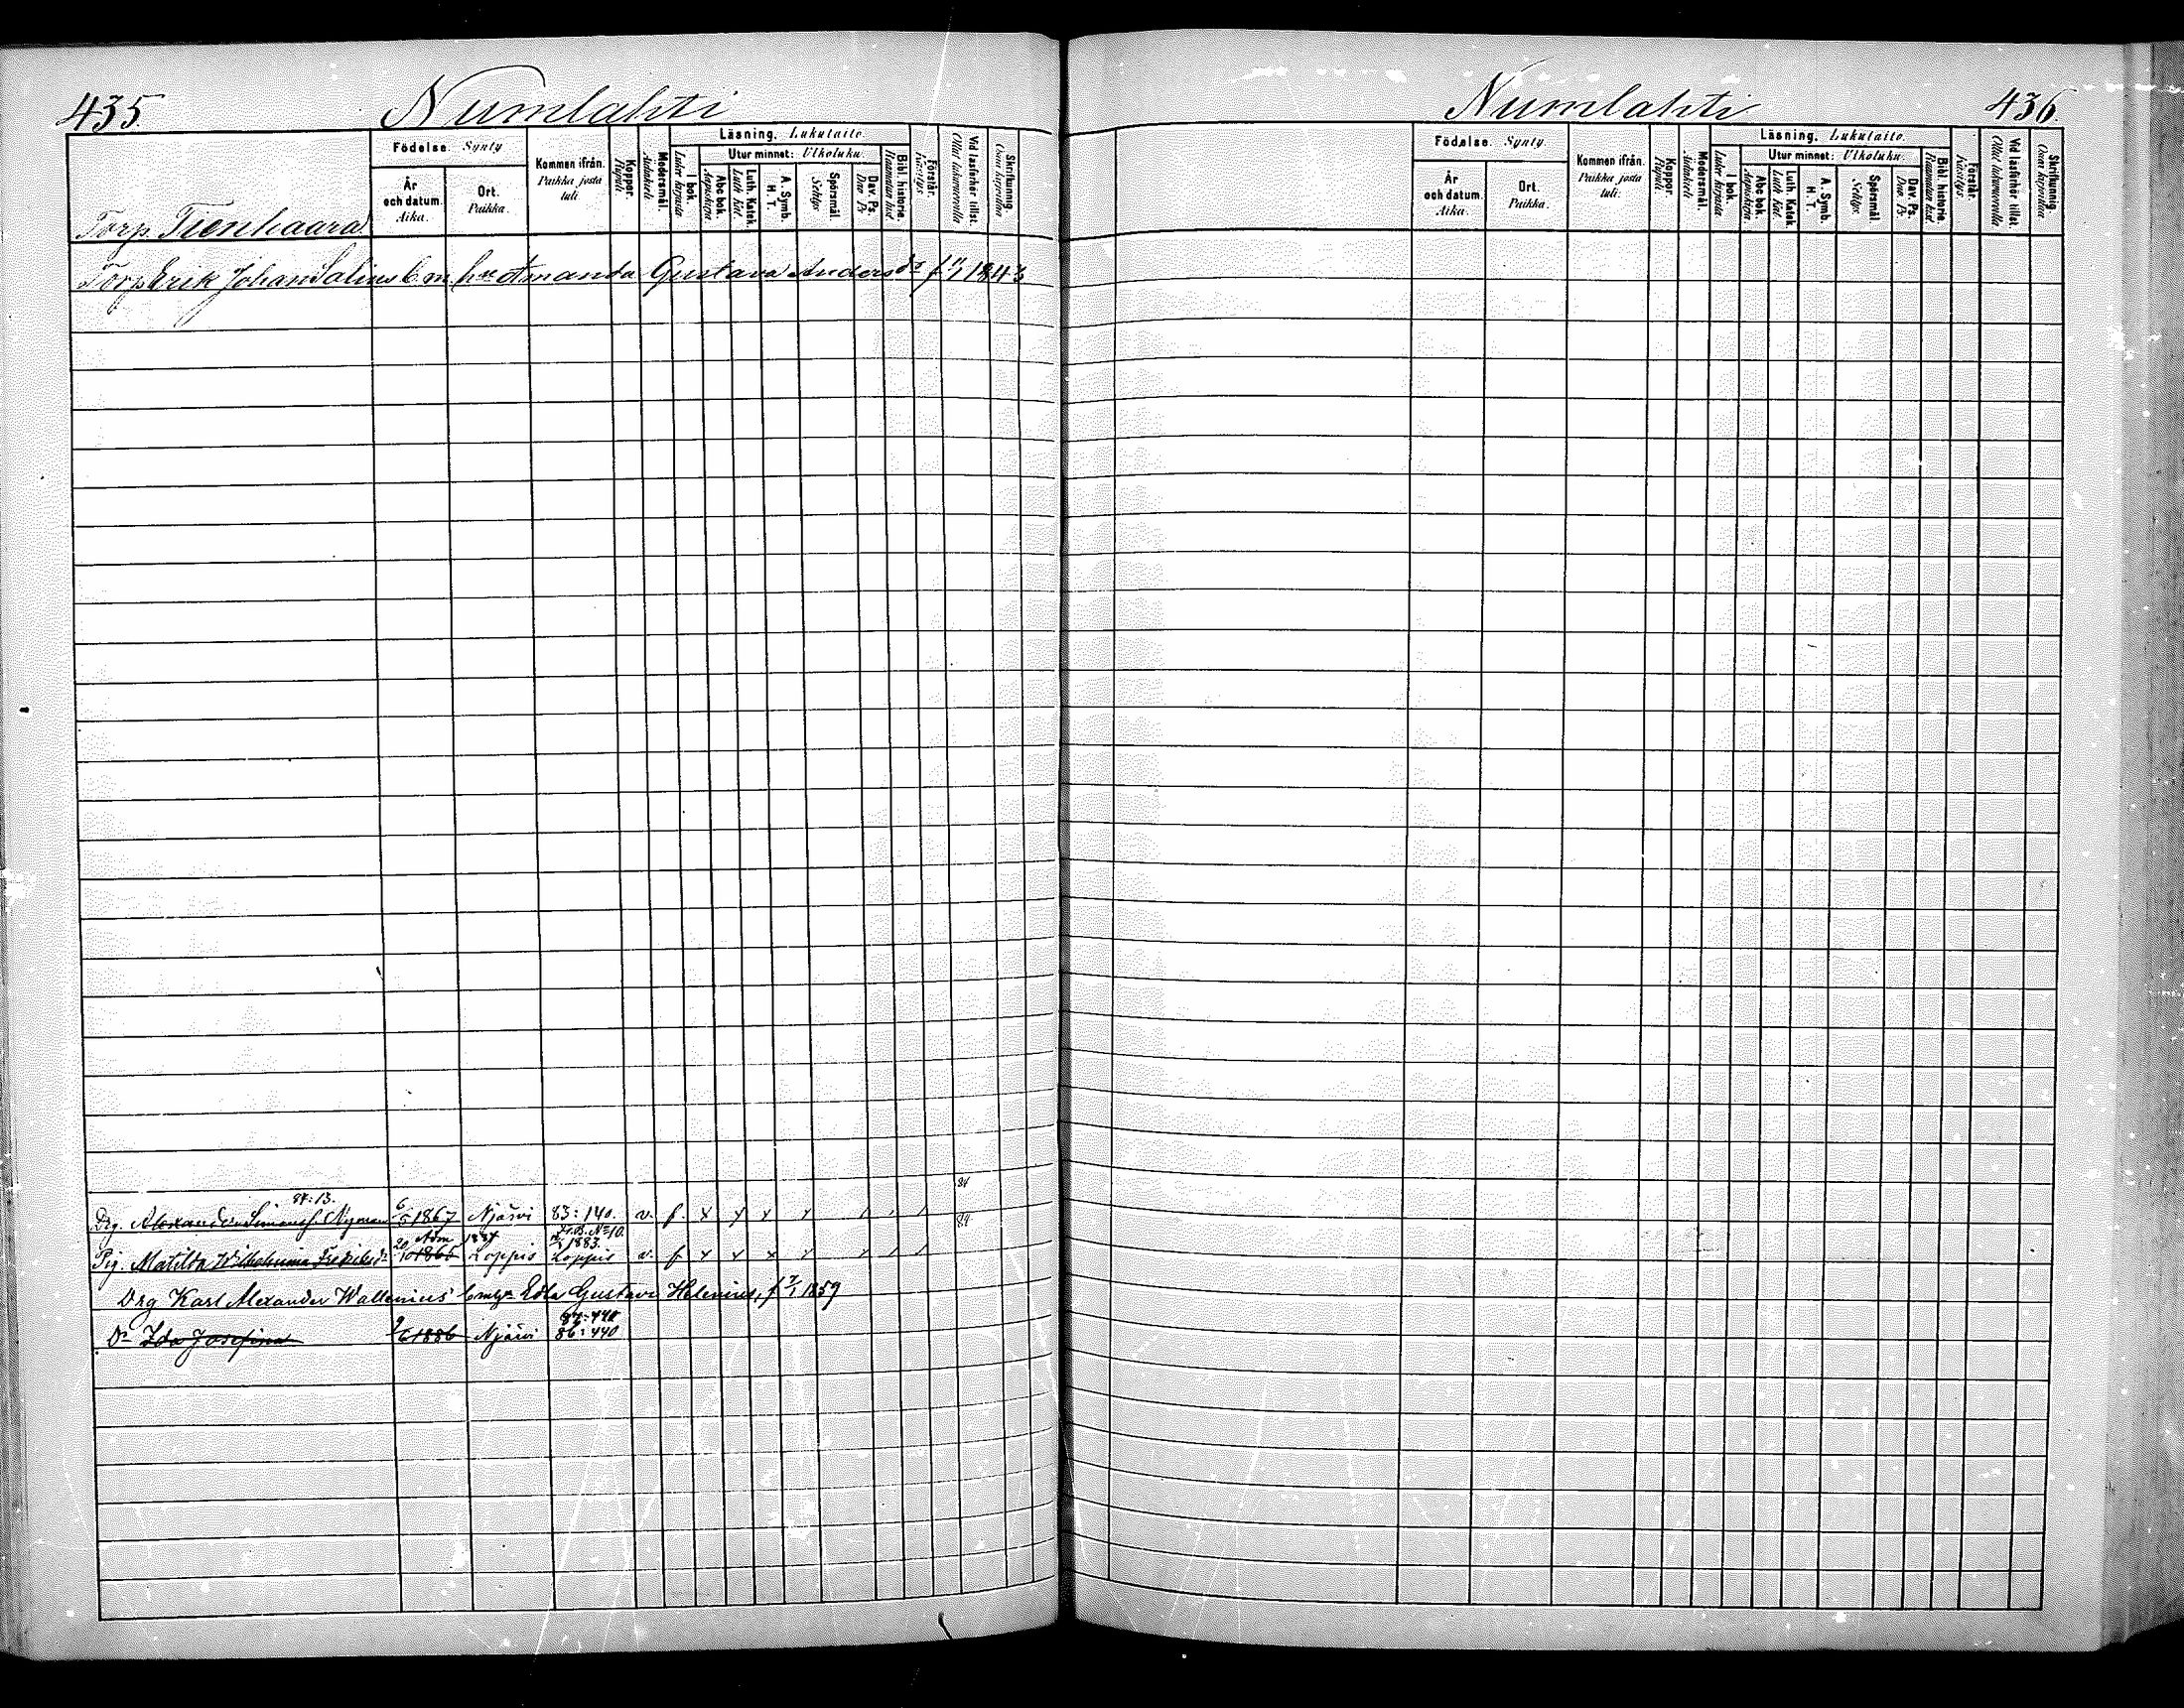 435.
Numlahti
Födelse. Synty
Kommen ifrån. Paikka josta tuli
Koppor. Rupuli
Modersmål. Äidinkieli
Läsning. Lukutaito.
Utur minnet: Ulkoluku.
År och datum. Aika.
Ort. Paikka.
I bok. Luku kirjasta
Abc bok. Aapiskirja
Luth. Katek. Luth. Kat.
A. Symb. H. T.
Spörsmål. Selitys
Dav. Ps. Dav. Ps
Bibl. historia. Raamatun hist.
Förstår. Käsitys.
Vid läsförhör tillst. Ollut lukuvuorolla
Skriftkunnig. Osaa kirjoittaa
Torp. Tienhaara
Torp Erik Johan Salins E. m. hu Amanda Gustava Andersdr f. 11/1 1843
84:13.
Drg. Alexander Simonsf. Nyman 6/5 1867 Njärvi 83:140. v. f. x x x x / / / 84
Adm 1884 Fr.B. No 10. 1883.
Pig. Matilda Wilhelmina 20/10 1866 Loppis Loppis v. f x x x x / / / 84
Drg Karl Alexander Wallenius' Edla Gustava Helenius, f 7/1 1859
87:440
Dr Ida Josefina 9/6 1886 Njärvi 86:440
Numlahti
436.
Födelse. Synty.
Kommen ifrån. Paikka josta tuli.
Koppor. Rupuli
Modersmål. Äidinkieli
Läsning. Lukutaito.
Utur minnet: Ulkoluku.
År och datum. Aika.
Ort. Paikka.
I bok. Luku kirjasta
Abc bok. Aapiskirja.
Luth. Katek. Luth. Kat.
A. Symb. H. T.
Spörsmål. Selitys.
Dav. Ps. Dav. Ps
Bibl. historia. Raamatun hist.
Förstår. Käsitys.
Vid läsförhör tillst. Ollut lukuvuorolla
Skriftkunnig. Osaa kirjoittaa